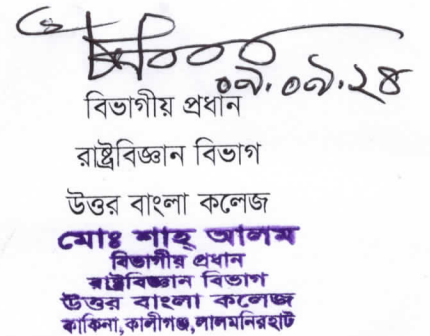 ০৯.০৯.২৪
বিভাগীয় প্রধান
রাষ্ট্রবিজ্ঞান বিভাগ
উত্তর বাংলা কলেজ
মোঃ শাহ্ আলম
বিভাগীয় প্রধান
রাষ্ট্রবিজ্ঞান বিভাগ
উত্তর বাংলা কলেজ
কাকিনা,কালীগঞ্জ,লালমনিরহাট